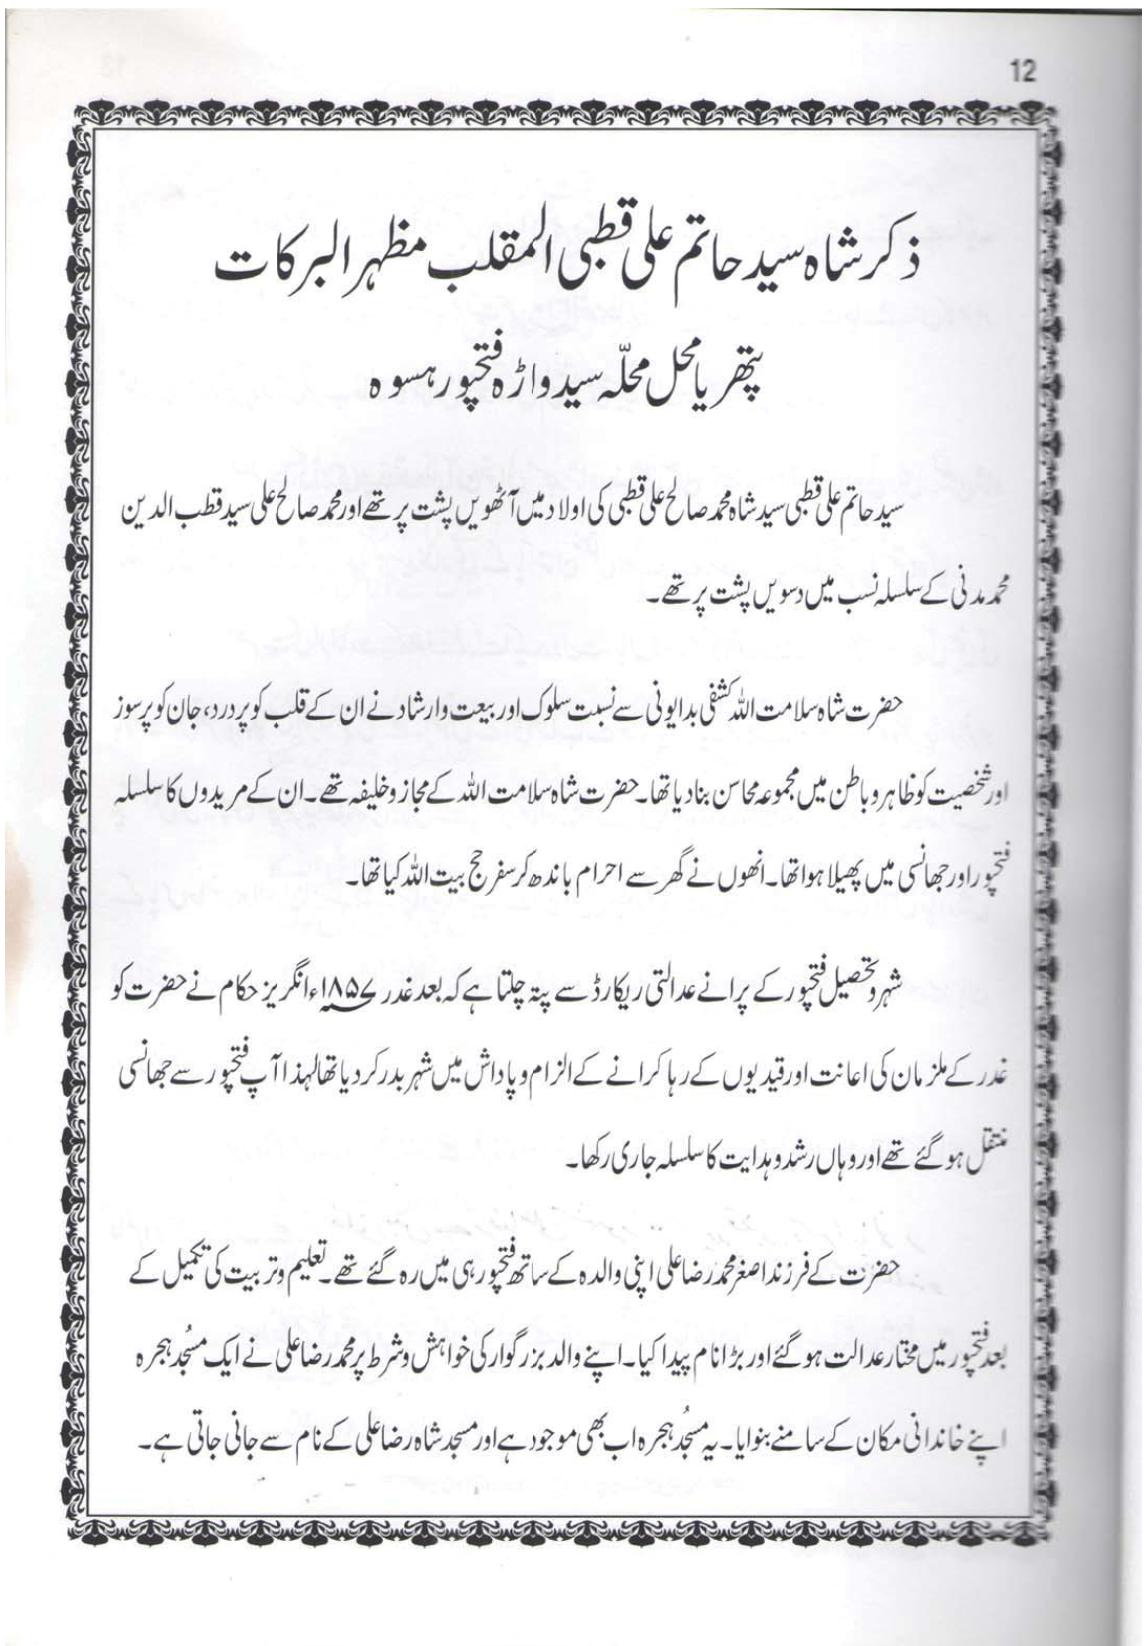 12
ذکر شاہ سید حاتم علی قطبی المقلب مظہر البرکات
پتھریا محل محلّہ سیدواڑہ فتحپور ہسوہ
سید حاتم علی قطبی سید شاہ محمد صالح علی قطبی کی اولاد میں آٹھویں پشت پر تھے اور محمد صالح علی سید قطب الدین
محمد مدنی کے سلسلہ نسب میں دسویں پشت پر تھے۔
حضرت شاہ سلامت اللہ کشفی بدایونی سے نسبت سلوک اور بیعت وارشاد نے ان کے قلب کو پر درد، جان کو پرسوز
اور شخصیت کو ظاہر و باطن میں مجموعہ محاسن بنا دیا تھا۔ حضرت شاہ سلامت اللہ کے مجاز و خلیفہ تھے۔ ان کے مریدوں کا سلسلہ
فتحپور اور جھانسی میں پھیلا ہوا تھا۔ انھوں نے گھر سے احرام باندھ کر سفر حج بیت اللہ کیا تھا۔
شہر و تحصیل فتحپور کے پرانے عدالتی ریکارڈ سے پتہ چلتا ہے کہ بعد غدر ۱۸۵۷ء انگریز حکام نے حضرت کو
غدر کے ملزمان کی اعانت اور قیدیوں کے رہا کرانے کے الزام و پاداش میں شہر بدر کر دیا تھا لہذا آپ فتحپور سے جھانسی
منتقل ہو گئے تھے اور وہاں رشد و ہدایت کا سلسلہ جاری رکھا۔
حضرت کے فرزند اصغر محمد رضا علی اپنی والدہ کے ساتھ فتحپور ہی میں رہ گئے تھے۔ تعلیم و تربیت کی تکمیل کے
بعد فتحپور میں مختار عدالت ہو گئے اور بڑا نام پیدا کیا۔ اپنے والد بزرگوار کی خواہش و شرط پر محمد رضا علی نے ایک مسجُد ہجرہ
اپنے خاندانی مکان کے سامنے بنوایا۔ یہ مسجُد ہجرہ اب بھی موجود ہے اور مسجد شاہ رضا علی کے نام سے جانی جاتی ہے۔